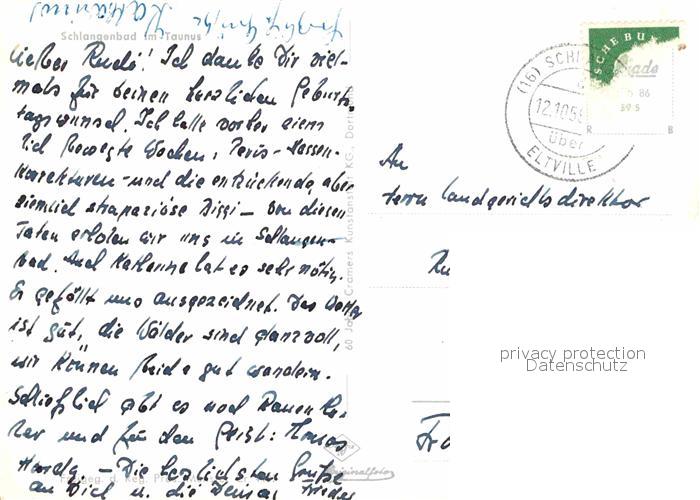 Fröhliche Grüße
Katharina
Schlangenbad im Taunus
Lieber Rudi! Ich danke Dir viel-
mals für deinen herzlichen Geburts-
tagswunsch. Ich hatte vorher ziem-
lich bewegte Wochen: Paris - Massen-
korrekturen - und die entzückende, aber
ziemlich strapaziöse Biggi - von diesen
Taten erholen wir uns in Schlangen-
bad. Auch Katharina hat es sehr nötig.
Es gefällt uns ausgezeichnet. Das Wetter
ist gut, die Wälder sind glanzvoll,
wir können beide gut wandern.
Schließlich gibt es noch
und für den Geist: Thomas
Hardy. - Die herzlichsten Grüße
an Dich u. die Deinen Frieder
60 Jahre Cramers Kunstanstalt KG., Dortmund
Originalfoto
(16) SCHL
12.10.59
über
ELTVILLE
SCHE BUN
86
39 5
R B
An
Herrn Landgerichtsdirektor
Ru
Fra
privacy protection
Datenschutz